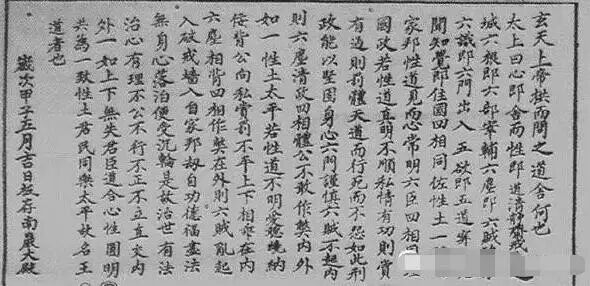 玄天上帝拱而問之道舍何也
太上曰心即舍而性即道清靜戒
城六根即六部宰輔六塵即六賊
六識即六門出入五欲即五道寇
聞知覺即住國四相同佐性土一
家邦性道見而心常明六臣四相同理
國政若性道直明不順私情有功則賞
有過則罰體天道而行死而不怨如此刑
政能以堅固身心六門謹慎六賊不起內
則六塵清政四相體公不敢作弊內外
如一性土太平若性道不明受納
佞背公向私賞罰不平上下相乖在內
六塵相背四相作弊在外則六賊亂起
入破戒墻入自家邦劫自功德福盡法
無身心落泊便受沉輪是故治世有法
治心有理不公不行不正不立直交內
外一如上下無失君臣道合心性圓明
共為一致性土君民同樂太平故名王
道者也
歲次甲子五月吉日板存南巖大殿